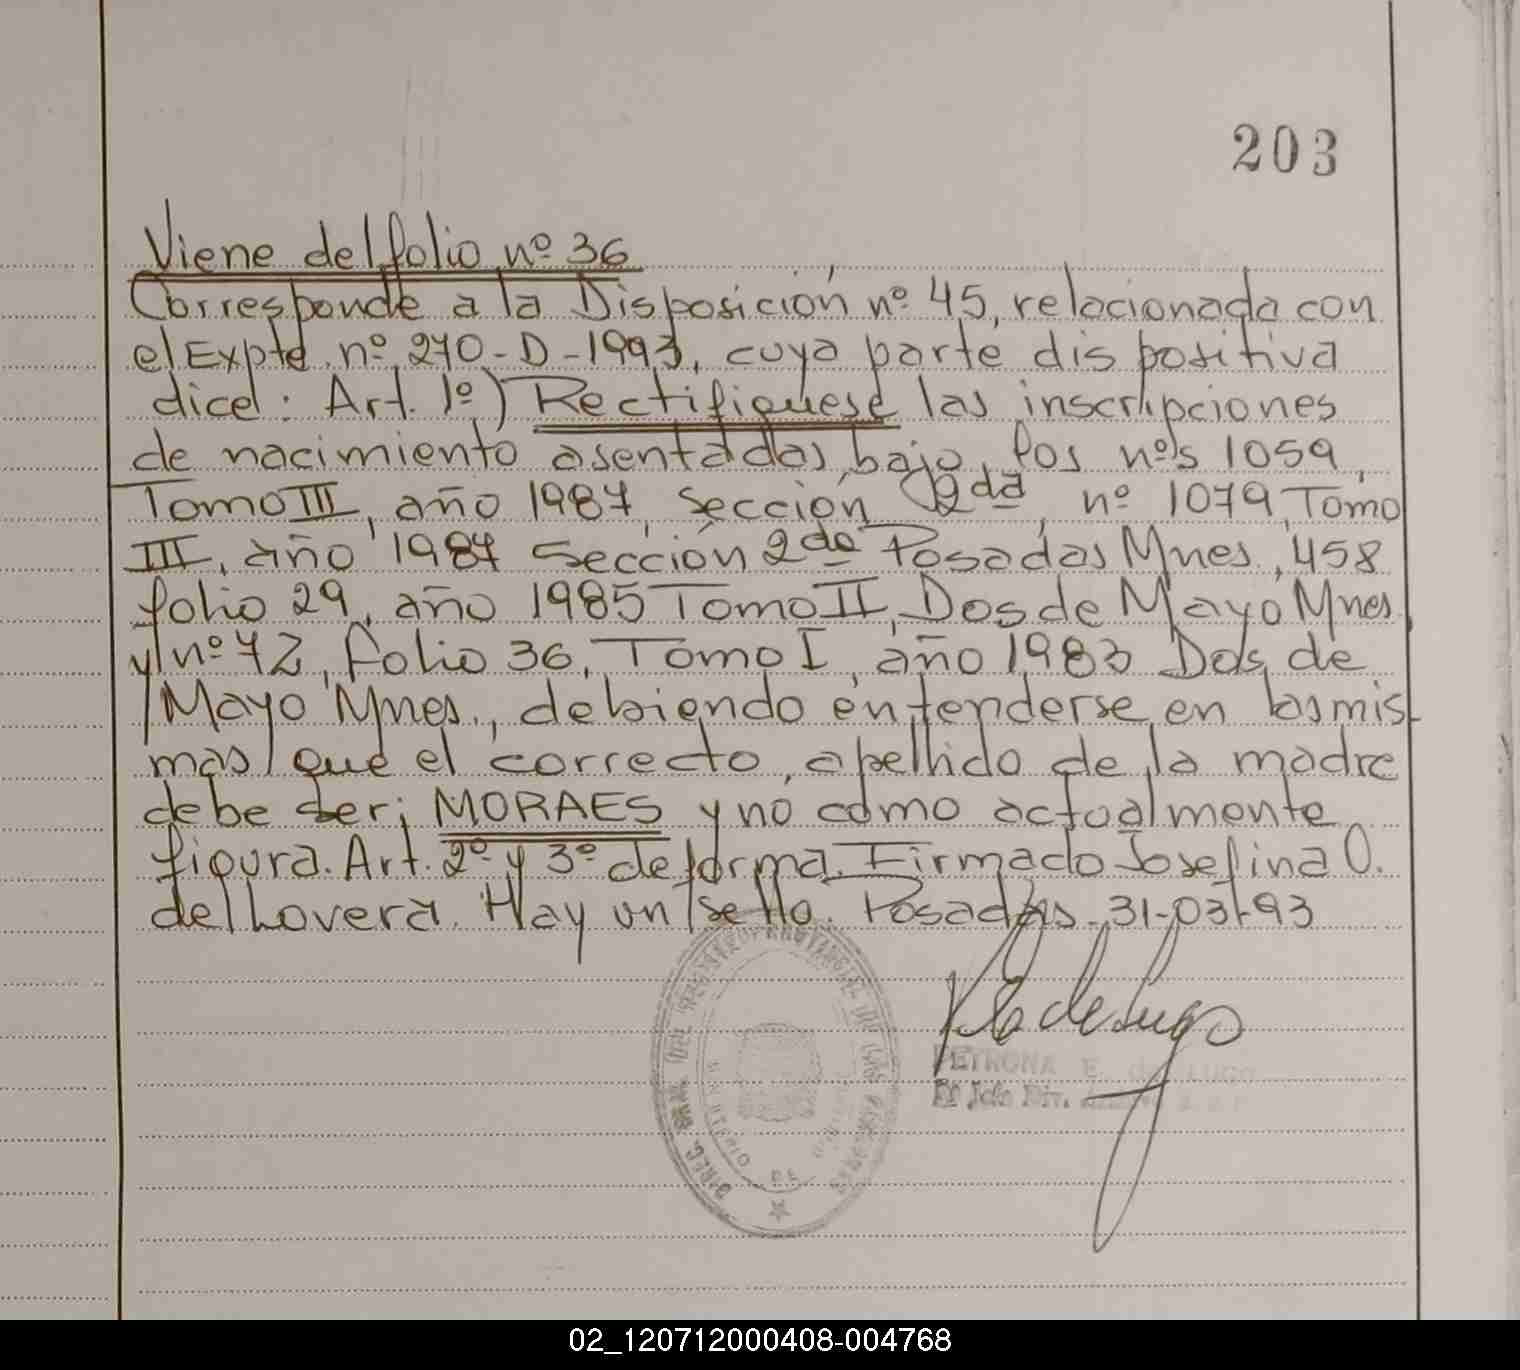 203
Viene del folio nº 36
Corresponde a la Disposición nº 45, relacionada con
el Expte. nº 270-D-1993, cuya parte dispositiva
dice: Art. 1º) Rectifiquese las inscripciones
de nacimiento asentadas bajo los nºs 1059,
Tomo III, año 1987, sección 2da, nº 1079, Tomo
III, año 1987 sección 2da Posadas Mnes, 458
folio 29, año 1985 Tomo II, Dos de Mayo Mnes.
y nº 72, folio 36, Tomo I, año 1983 Dos de
Mayo Mnes., debiendo entenderse en las mis
mas que el correcto apellido de la madre
debe ser; MORAES y no como actualmente
figura. Art. 2º y 3º de forma. Firmado Josefina O.
de Lovera. Hay un sello. Posadas-31-03-93
de Lugo
PETRONA E. de LUGO
Jefe Div.
DIREC. GRAL. DEL REGISTRO PROVINCIAL DE LAS PERSONAS